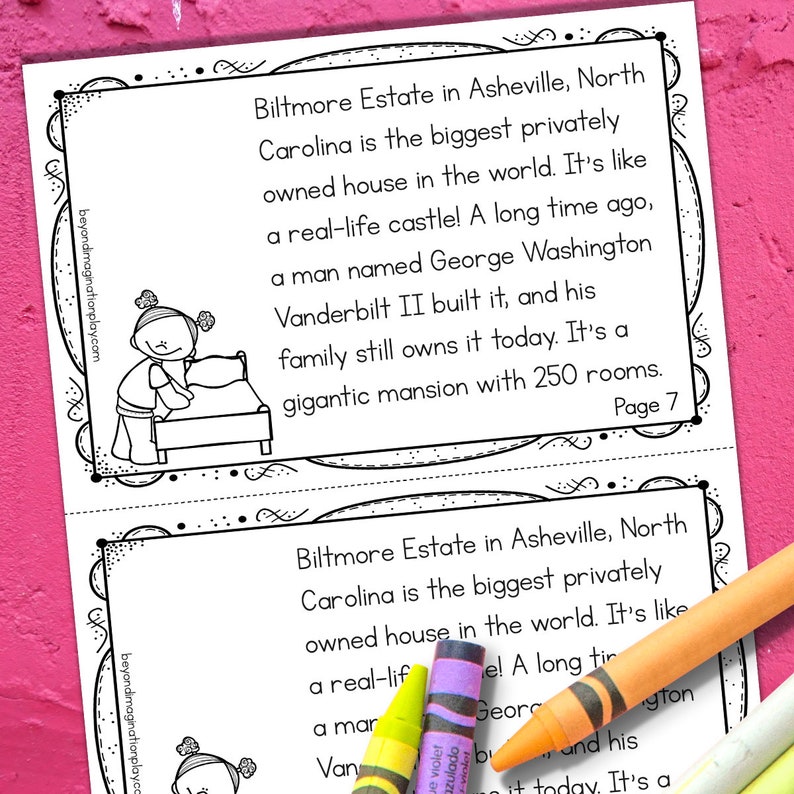 Biltmore Estate in Asheville, North
Carolina is the biggest privately
owned house in the world. It's like
a real-life castle! A long time ago,
a man named George Washington
Vanderbilt II built it, and his
family still owns it today. It's a
gigantic mansion with 250 rooms.
Page 7
beyondimaginationplay.com
Biltmore Estate in Asheville, North
Carolina is the biggest privately
owned house in the world. It's like
a real-lif le! A long
a mar George
Vanderbilt and his
it today. It's a
beyondimaginationplay.com
ue violet
azulado
-violet